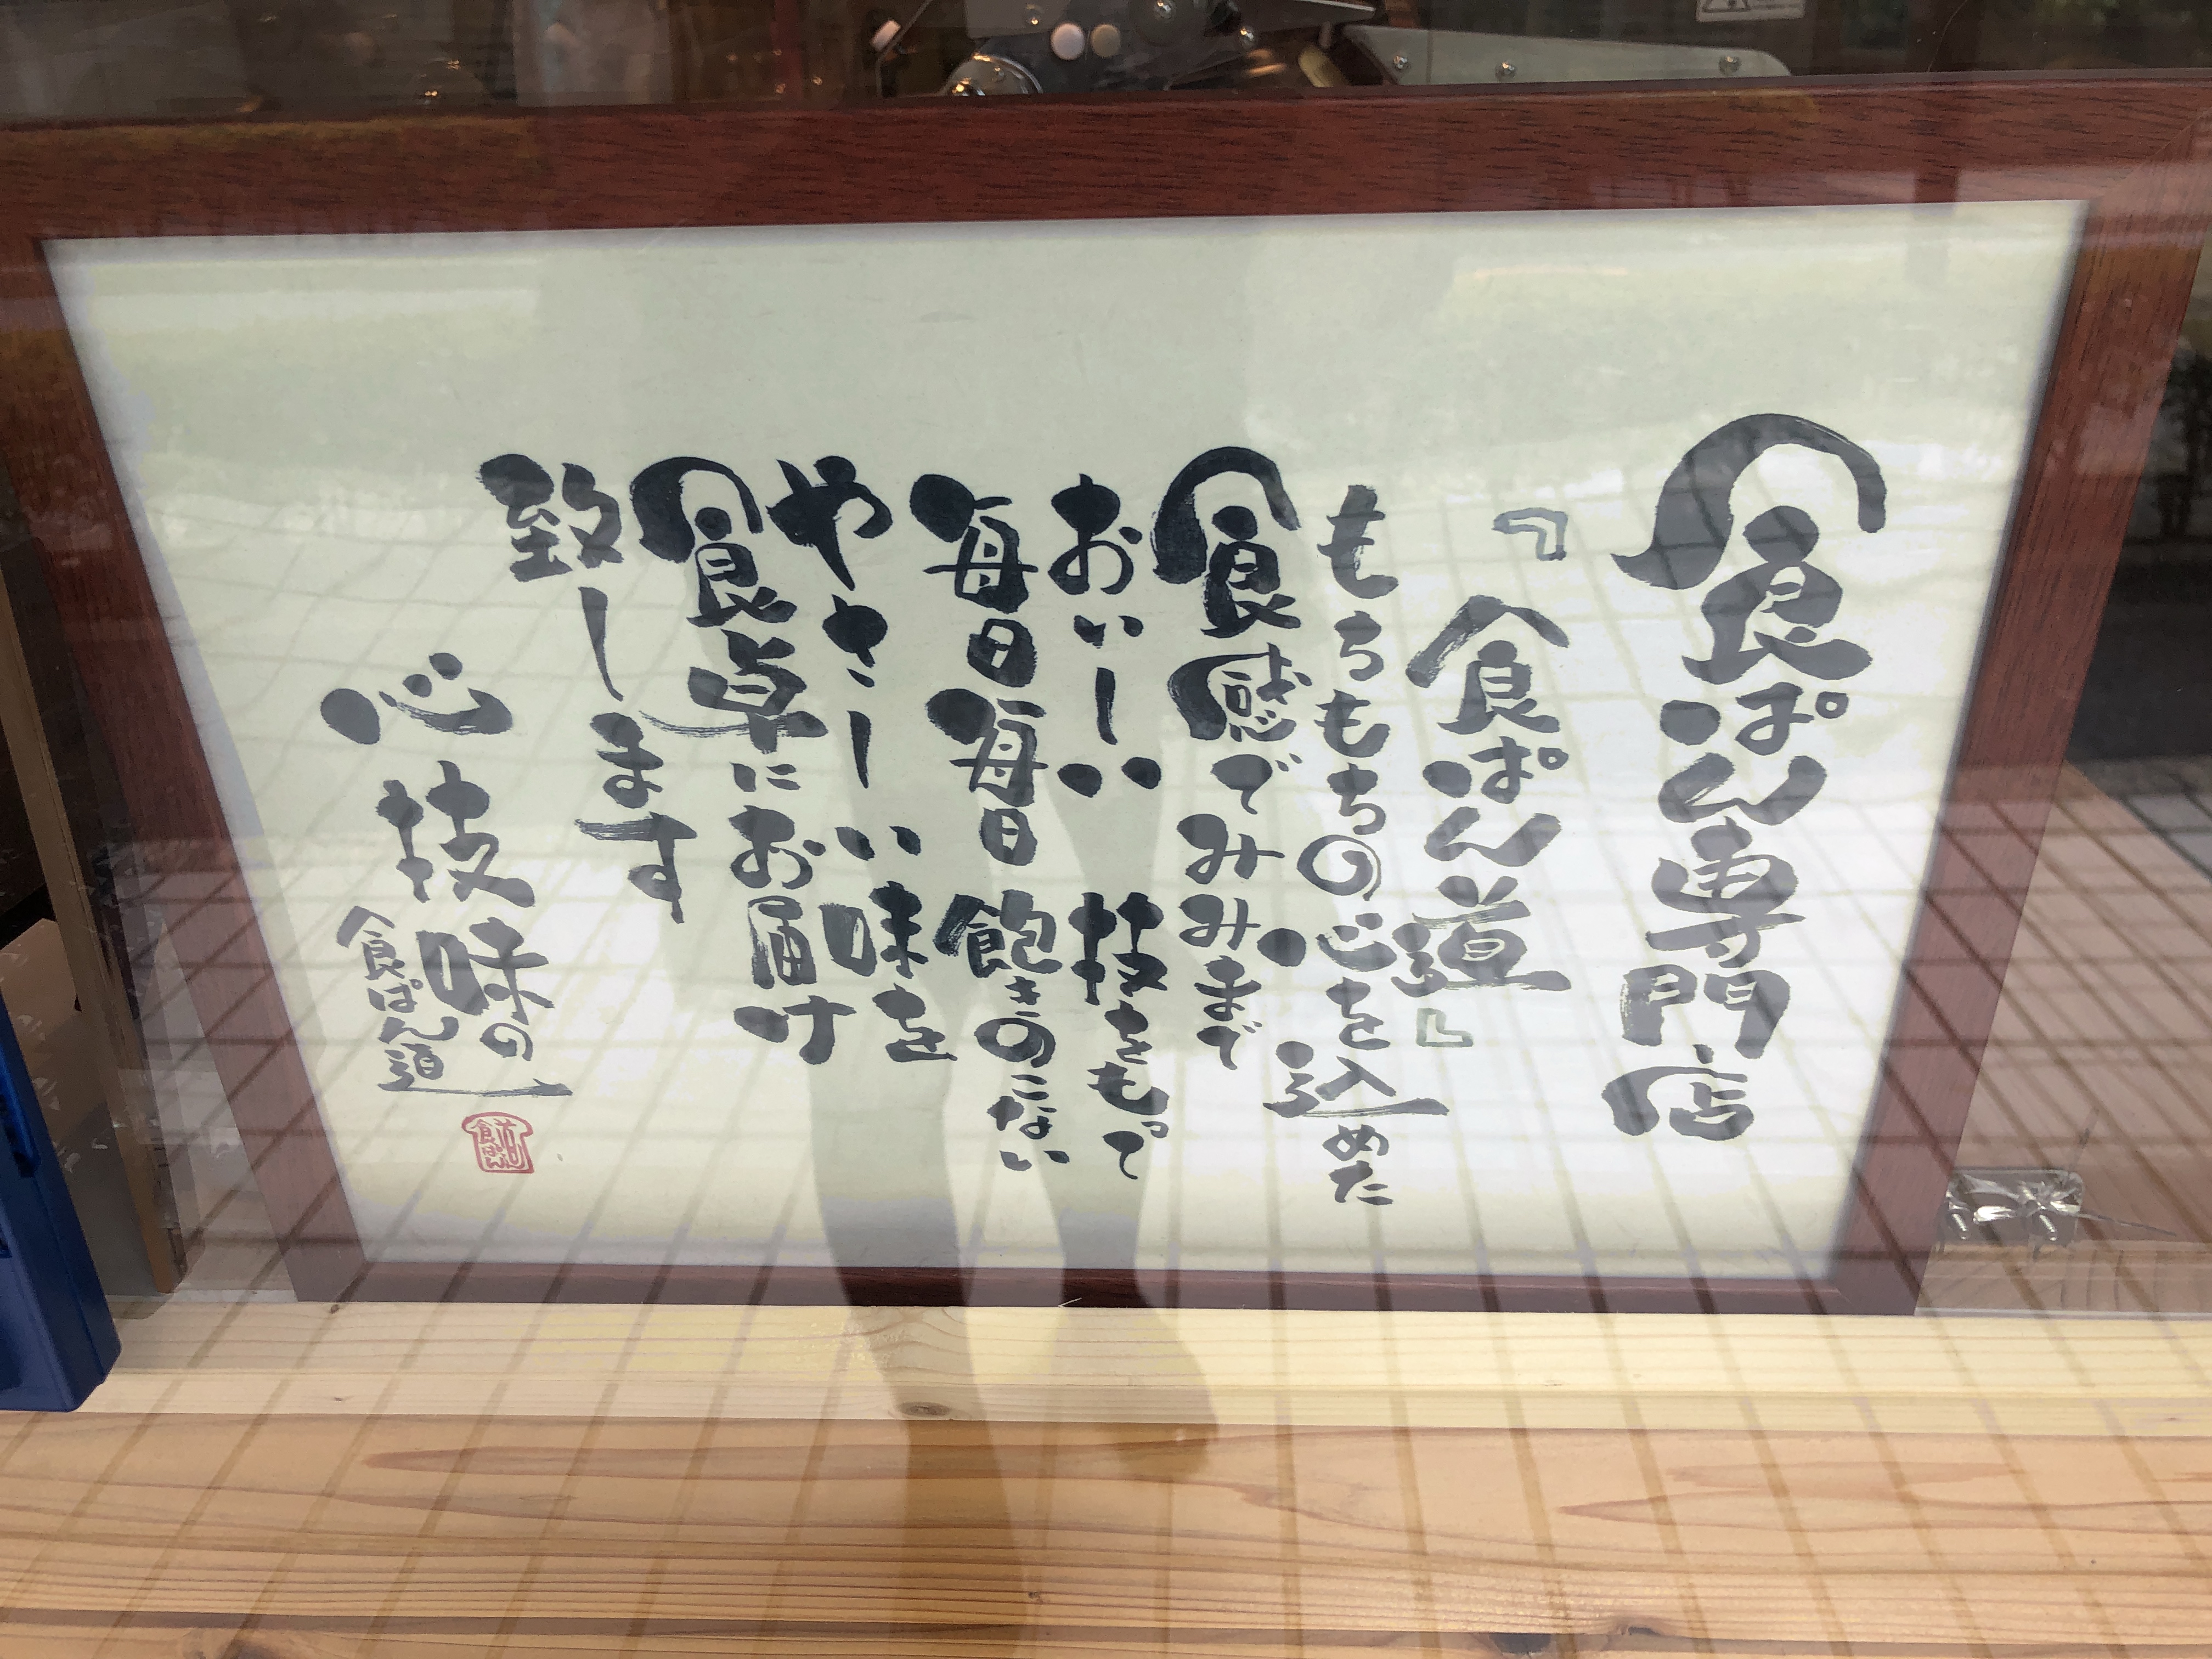 食ぱん専門店
『食ぱん道』
もちもちの心を込めた
食感でみみまで
おいしい 技をもって
毎日毎日 飽きのこない
やさしい味を
食卓にお届け
致します
心 技 味の
食ぱん道
食ぱん道